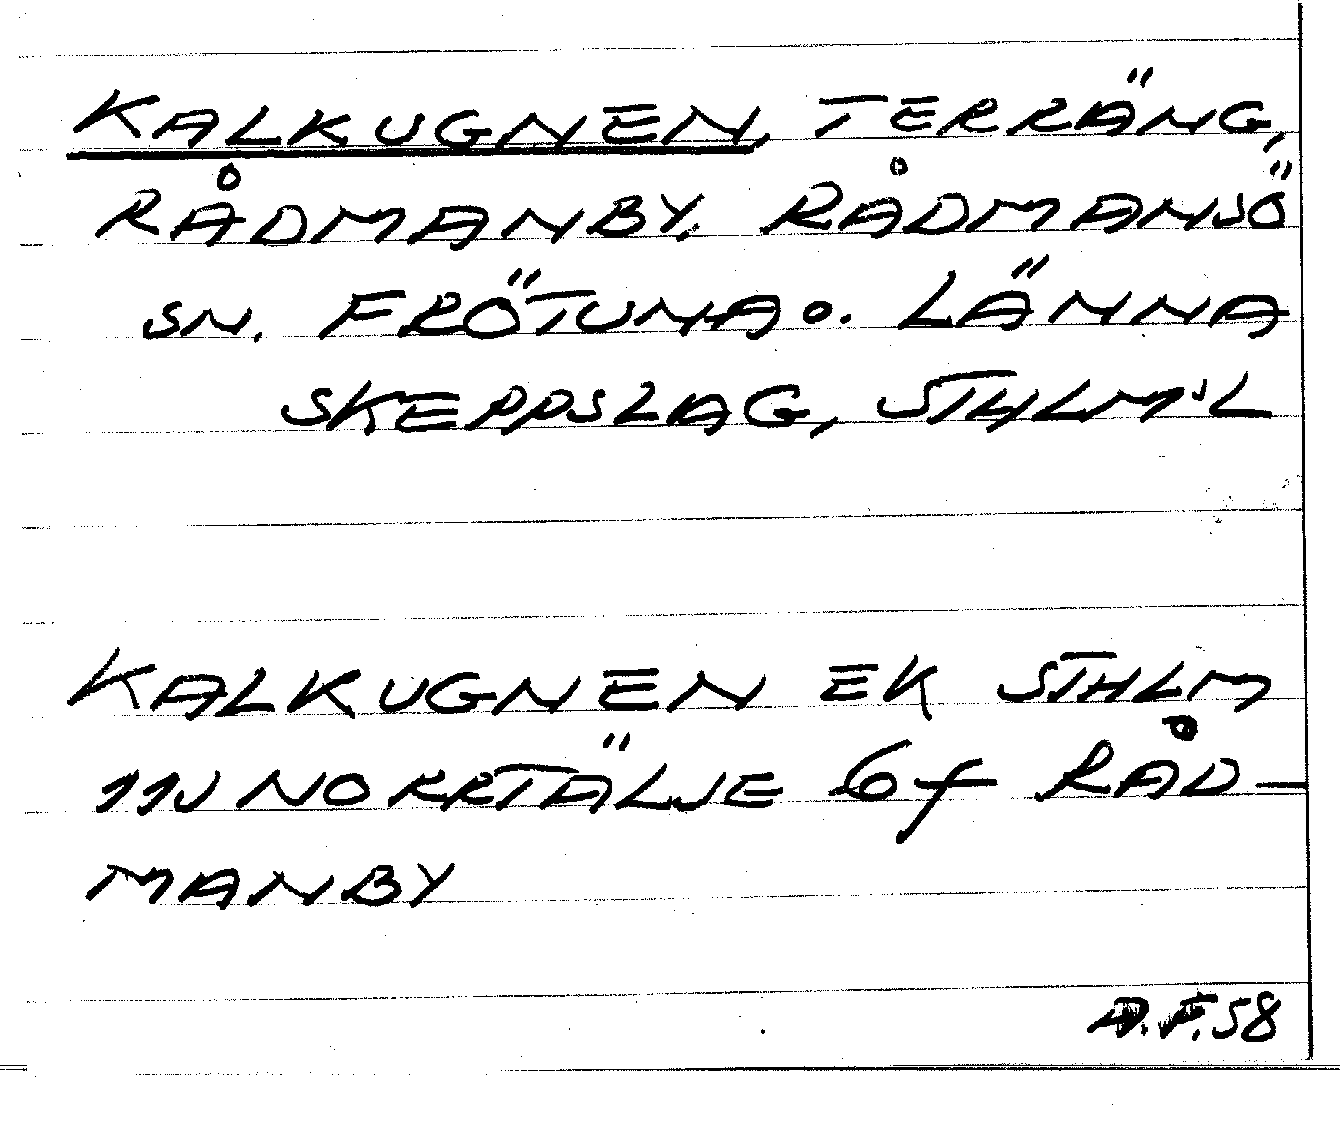 KALKUGNEN, TERRÄNG,
RÅDMANBY, RÅDMANSÖ
SN. FRÖTUNA O. LÄNNA
SKEPPSLAG, STHLM'L
KALKUGNEN EK STHLM
11J NORRTÄLJE 6f RÅD-
MANBY
A.F.58